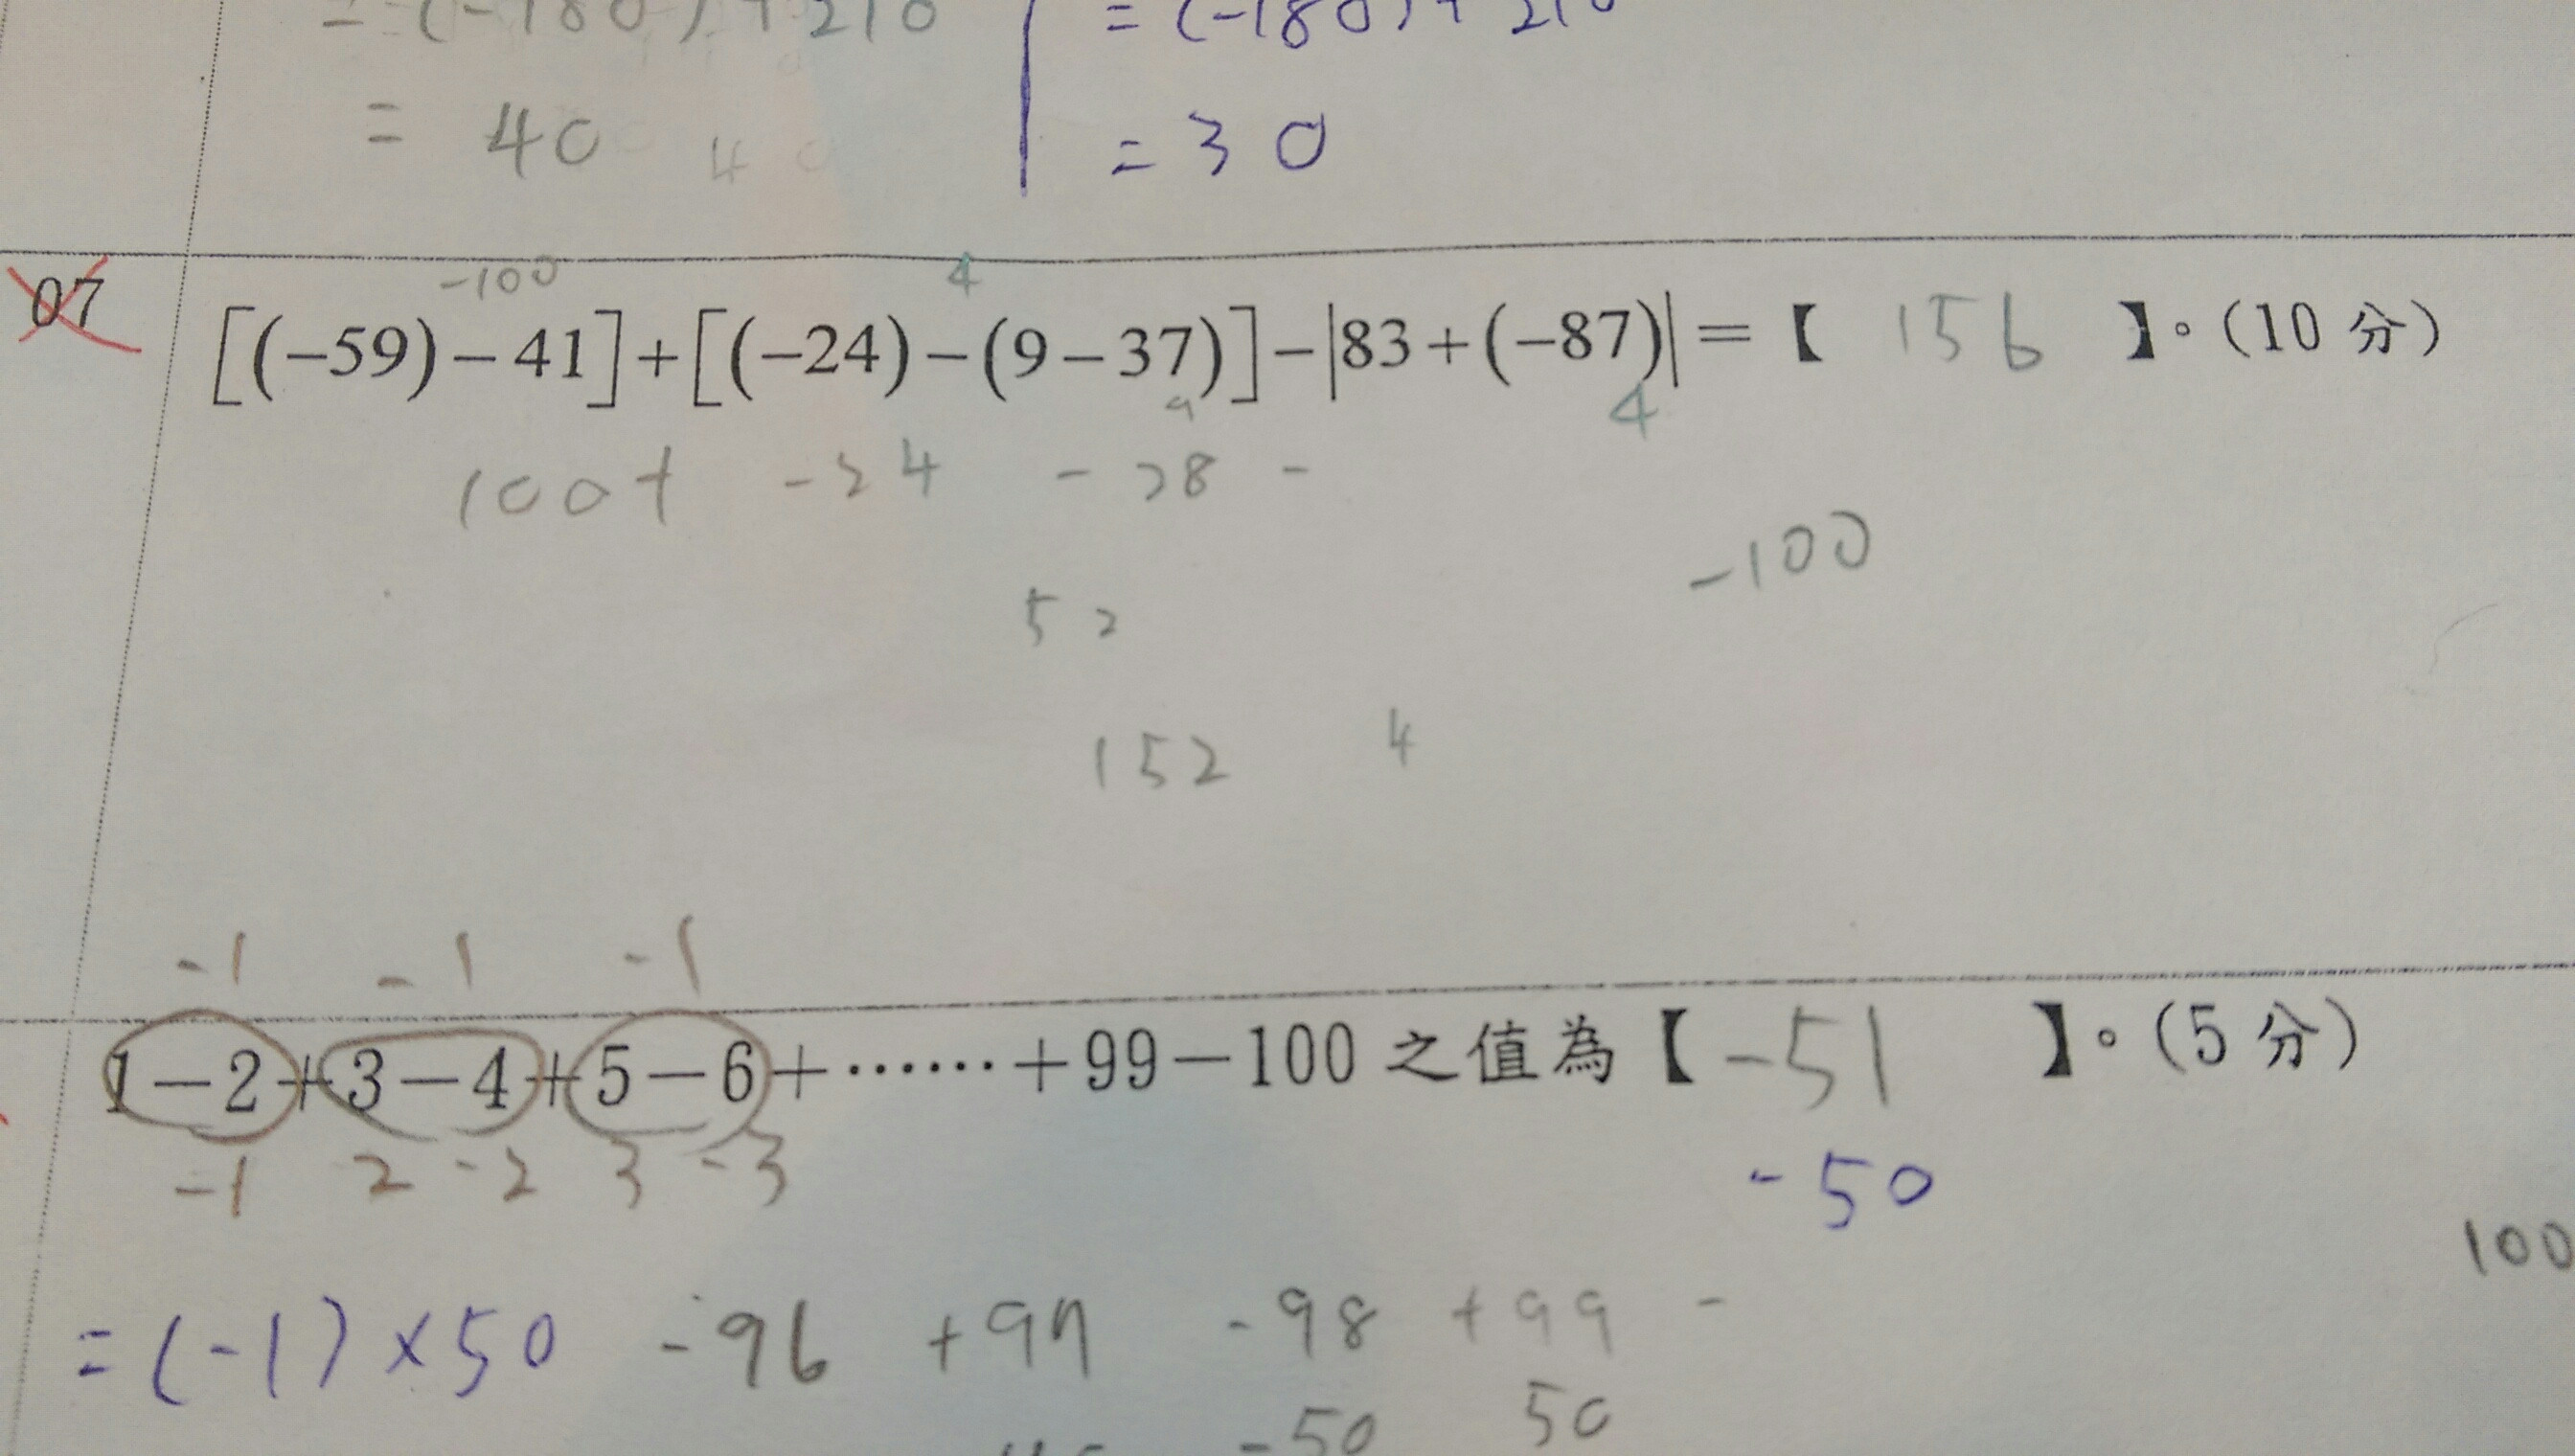 = (-180) + 210 = (-180) + 210
= 40 40 = 30
-100 4
07 [(-59)-41]+[(-24)-(9-37)]-|83+(-87)|=【 156 】。(10 分)
4
100+ -24 -28 -
-100
52
152 4
-1 -1 -1
1-2+3-4+5-6+……+99-100 之值為【 -51 】。(5 分)
-1 2 -2 3 -3 -50
100
=(-1)×50 -96 +97 -98 +99 -
-50 50